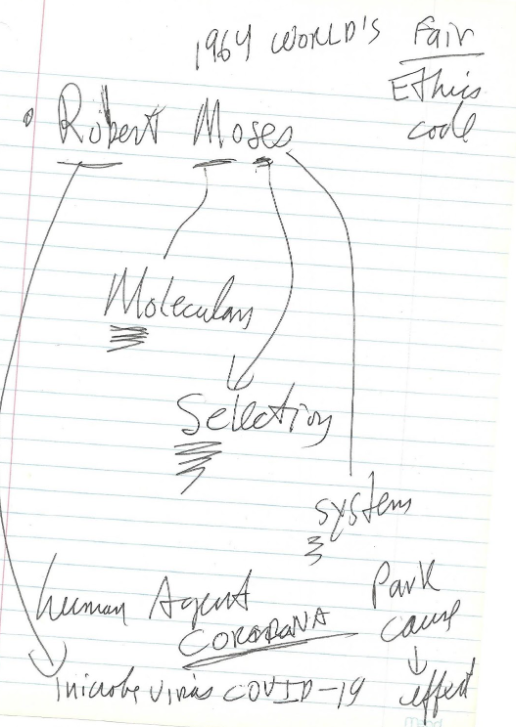 1964 WORLD'S Fair
Ethics
code
Robert Moses
Molecular
Selection
system
human Agent
CORORANA
Park
cause
microbe virus COVID-19
effect